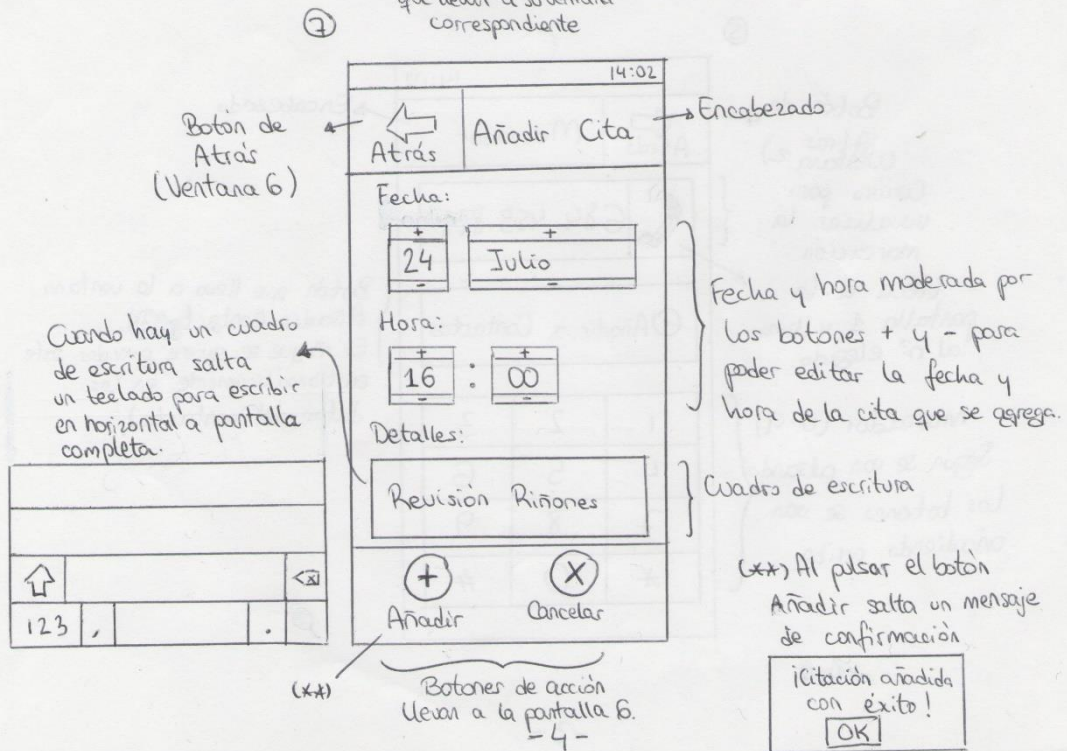 correspondiente
7
14:02
Botón de
Atrás
(Ventana 6)
Atrás
Añadir Cita
Encabezado
Fecha:
+
+
24
Julio
-
-
Hora:
+
+
16 : 00
-
-
Fecha y hora moderada por
los botones + y - para
poder editar la fecha y
hora de la cita que se agrega.
Cuando hay un cuadro
de escritura salta
un teclado para escribir
en horizontal a pantalla
completa.
Detalles:
Revisión Riñones
Cuadro de escritura
x
123 , .
+
Añadir
X
Cancelar
(**)
Botones de acción
llevan a la pantalla 6.
-4-
(**) Al pulsar el botón
Añadir salta un mensaje
de confirmación
¡Citación añadida
con éxito!
OK